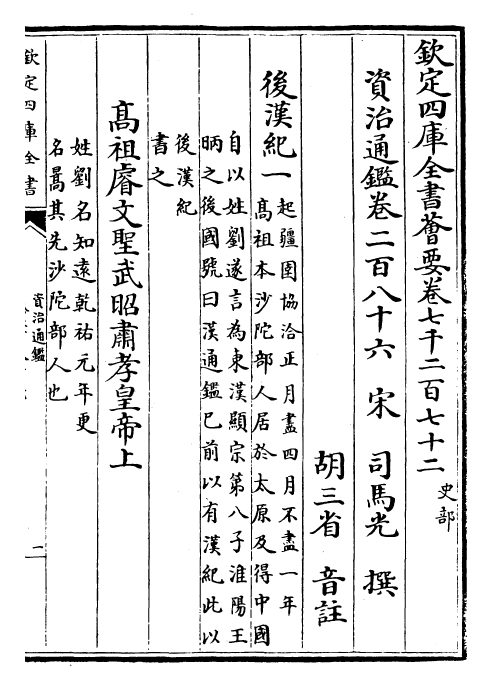 欽定四庫全書薈要卷七千二百七十二 史部
資治通鑑卷二百八十六 宋 司馬光 撰
胡三省 音註
後漢紀一 起疆圉協洽正月盡四月不盡一年
高祖本沙陀部人居於太原及得中國
自以姓劉遂言為東漢顯宗第八子淮陽王
昞之後國號曰漢通鑑已前以有漢紀此以
後漢紀
書之
髙祖睿文聖武昭肅孝皇帝上
姓劉名知遠乾祐元年更
名暠其先沙陀部人也
欽定四庫全書
資治通鑑
二